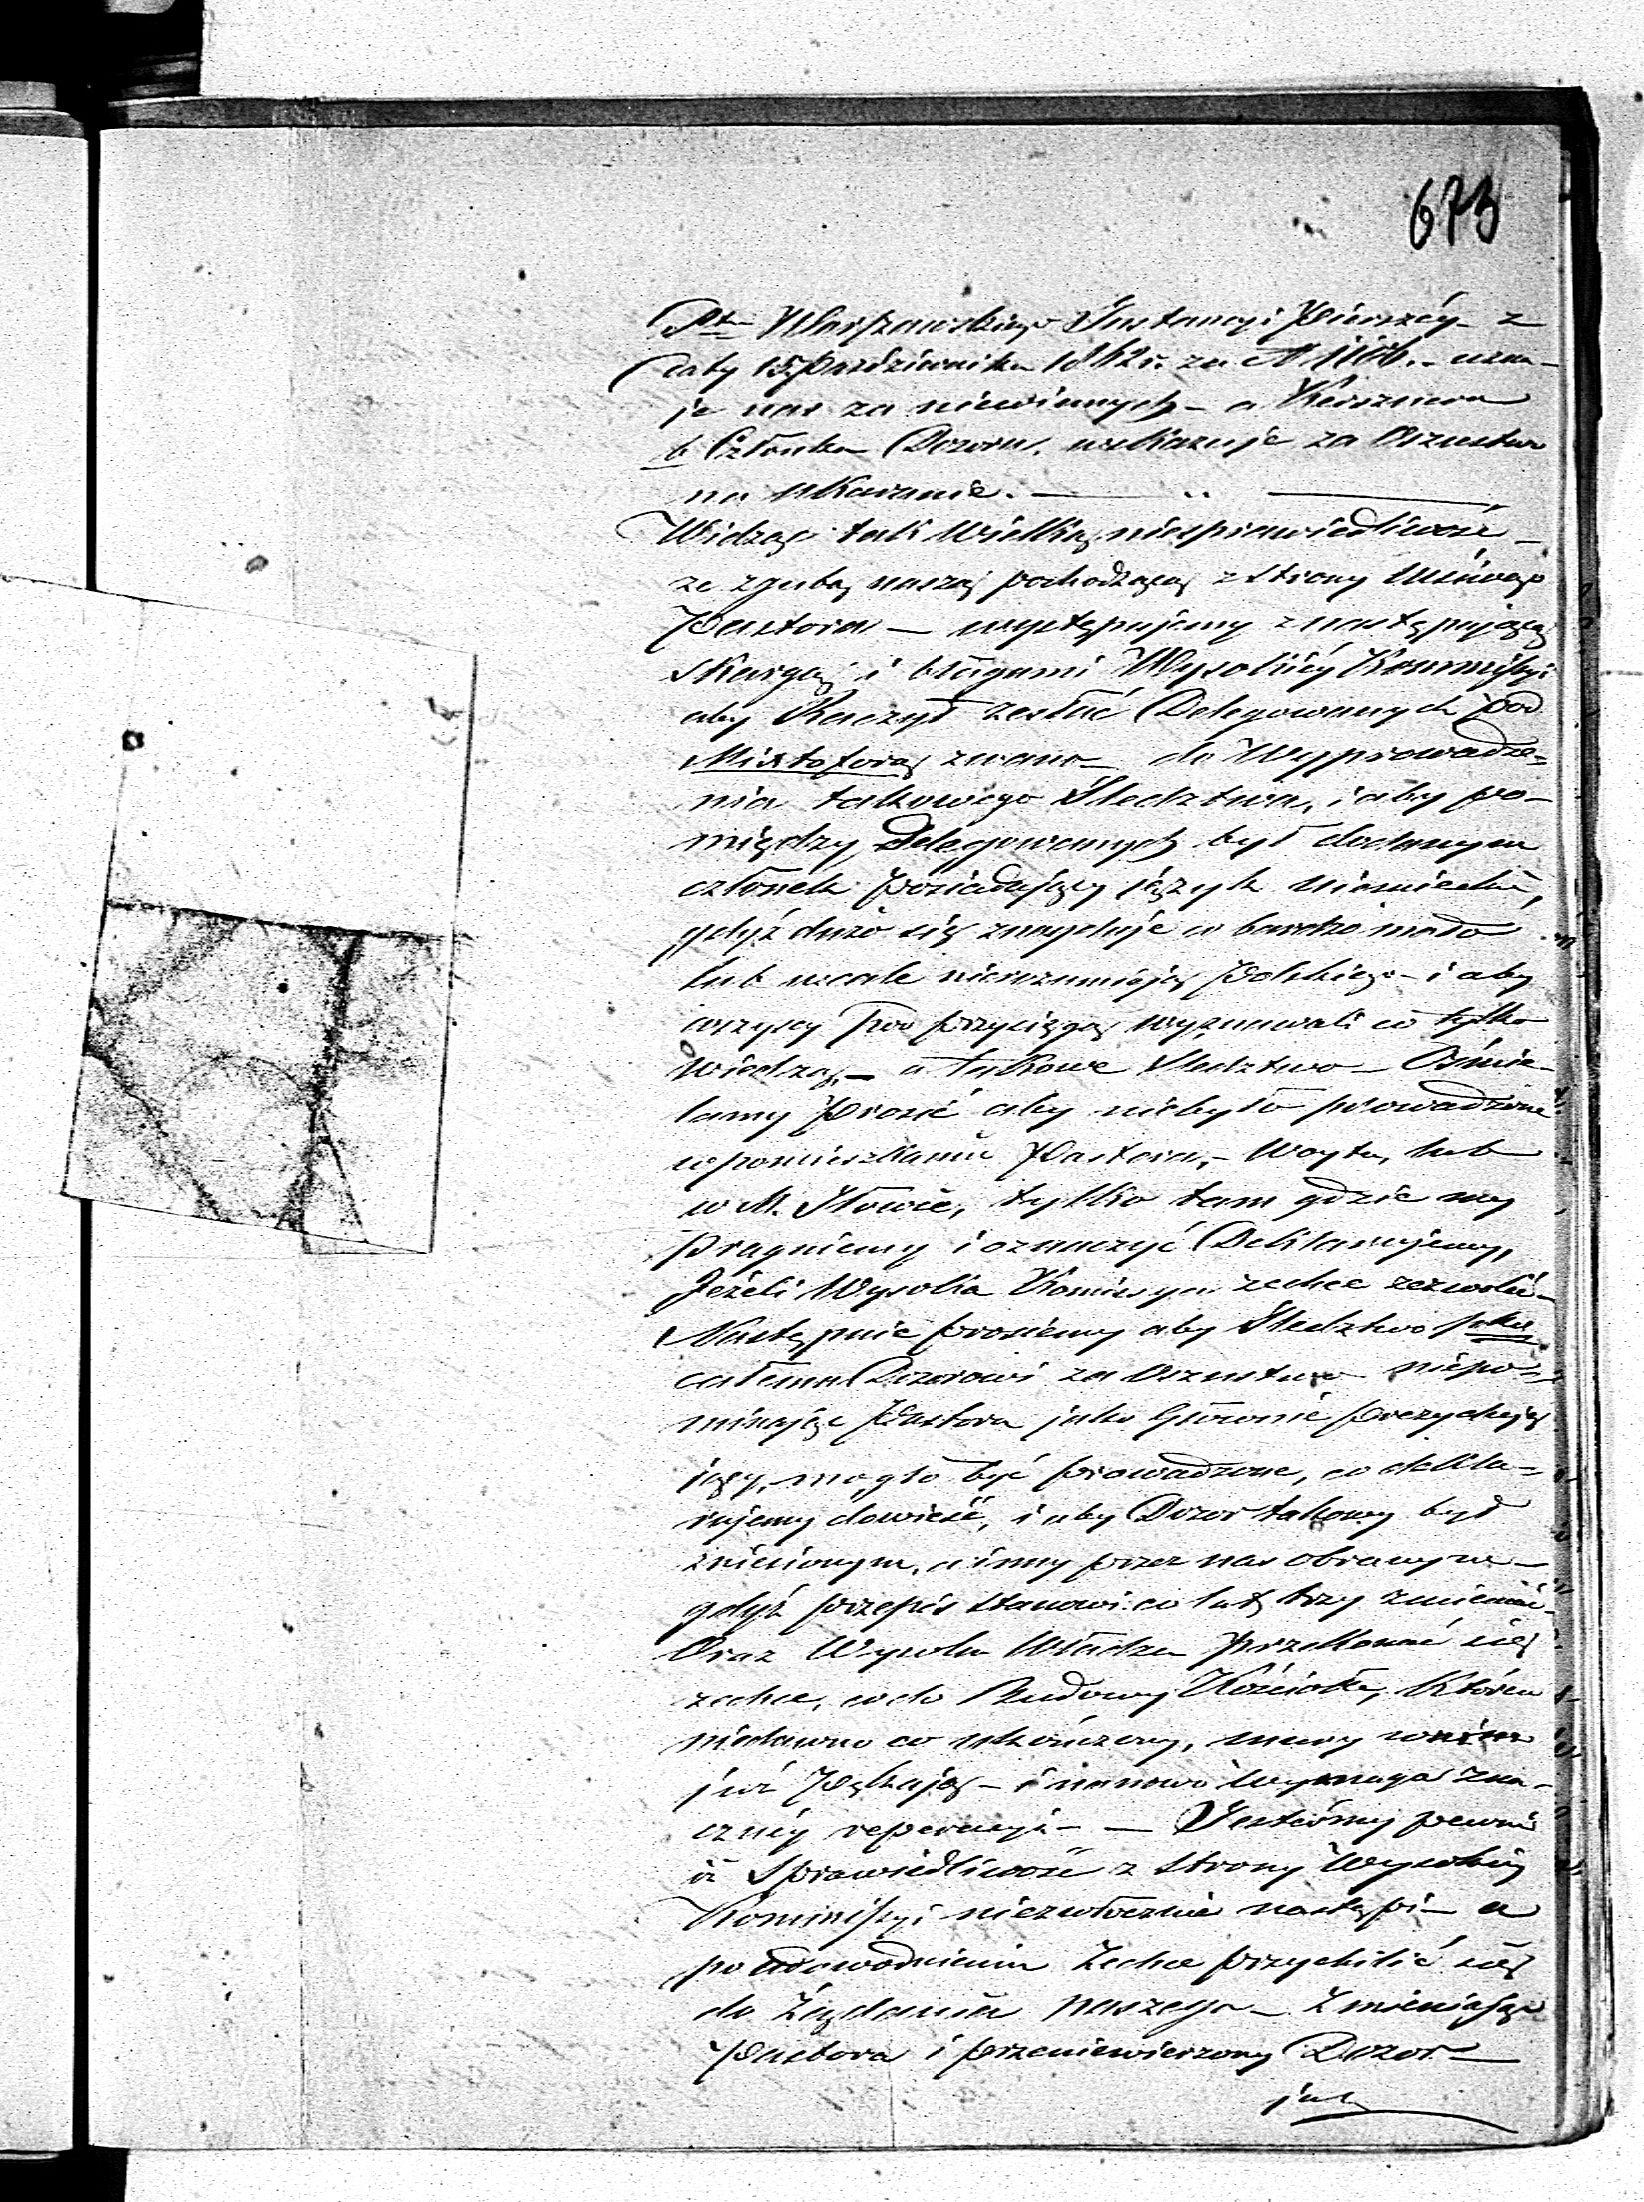 673
Ptu Warszawskiego Instancyi Pierwszéy z
daty 15 Pazdziernika 1842 r. za N 1106. uzna-
je nas za niewinnych - a
b Członka Dozoru, wskazuje za Oszustwo
na Ukaranie. —
Widząc tak Wielką niesprawiedliwość
ze zgubą naszą pochodzącą z strony
Pastora — występujemy z następującą
skargą i błagami Wysokiéy Kommissyi
aby Raczył zesłać Delegowanych pod
Mixtoforą zwano do Wyprowadze-
nia takowego Sledztwa, i aby po-
między Delegowanych był dodanym
członek posiadający język niemiecki,
gdyż dużo się znayduje co bardzo mało
lub wcale nierozumieją Polskiego - i aby
wszyscy pod przysięgą wyznawali co tylko
wiedzą, - a takowe Sledztwo - Ośmie-
lamy prosić aby niebyło prowadzone
w pomieszkaniu Pastora, - Woyta, lub
w M. Iłowie, tylko tam gdzie my
Pragniemy i oznaczyć Deklarujemy,
Jeżeli Wysoka Komissya zechce zezwolić -
Następnie prosiemy aby Sledztwo
całemu Dozorowi za Oszustwo niepo-
minając Pastora jako Głównie
jący, mogło być prowadzone, co dekla-
rujemy dowieść, i aby Dozor takowy był
zniesionym, a inny przez nas obranym -
gdyż przepis stanowi co lat trzy zmieniać -
Oraz Wysoka Władza przekonać się
zechce, co do Budowy Kościoła, któren
niedawno co ukończony, mury w nim
już Pękają - i nanowo Wymaga zna-
cznéy reperacyi - — Jesteśmy pewni
iż Sprawiedliwość z strony Wysokiéy
Kommissyi niezwłocznie nastąpi - a
po udowodnieniu zechce przychilić się
do Żądania naszego - Zmieniając
Pastora i przeniewierzony Dozor —
jak